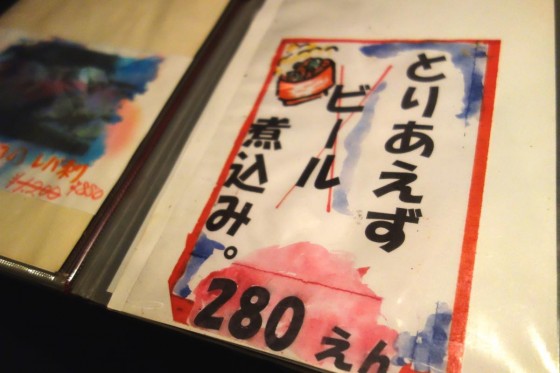 とりあえず
ビール
煮込み。
280えん
レバ刺